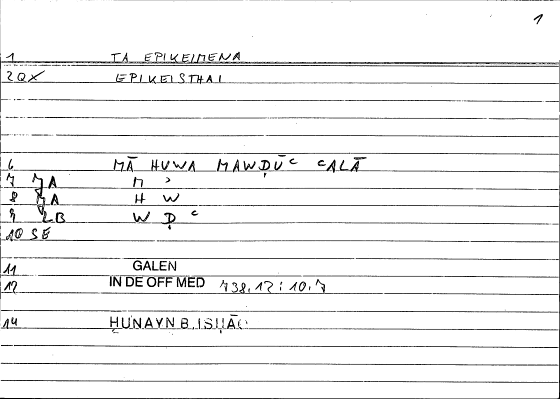 1
1 TA EPIKEIMENA
2QX EPIKEISTHAI
6 MĀ HUWA MAWḌŪʿ ʿALĀ
7 7A M ʾ
8 7A H W
9 2B W Ḍ ʿ
10 SE
11 GALEN
12 IN DE OFF MED 738,12 : 10,7
14 ḤUNAYN B.ISḤĀQ